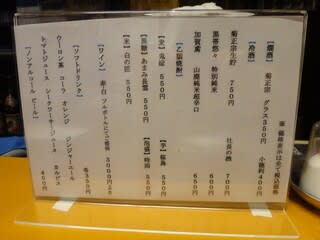 ※ 価格表示は全て税込価格
【燗酒】 菊正宗 グラス350円 小徳利400円
【冷酒】
菊正宗生貯 750円 社長の酒 700円
黒帯悠々 特別純米 600円
加賀鳶 山廃純米超辛口 650円
【乙類焼酎】
【麦】 550円 【芋】 550円
【黒糖】 あまみ長雲 550円 【泡盛】 時雨 550円
【米】 白の匠 550円
【ワイン】 赤・白 フルボトルにてご提供 3000円より
【ソフトドリンク】 各350円
ウーロン茶 コーラ オレンジ ジンジャーエール
トマトジュース シークワーサージュース カルピス
【ノンアルコール ビール】 450円